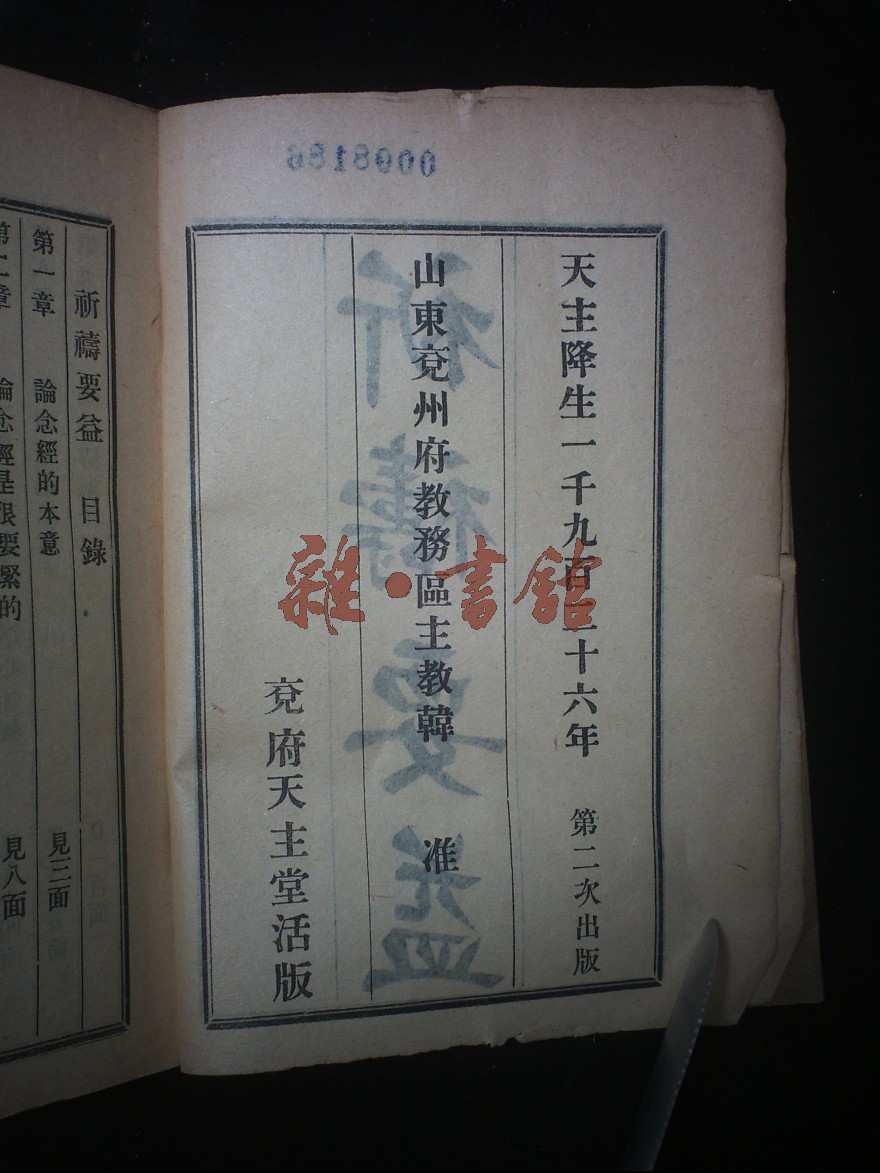 0008186
天主降生一千九百二十六年 第二次出版
山東兗州府教務區主教韓 准
兗府天主堂活版
祈禱要益
雜·書館
祈禱要益 目錄
第一章 論念經的本意 見三面
第二章 論念經是很要緊的 見八面